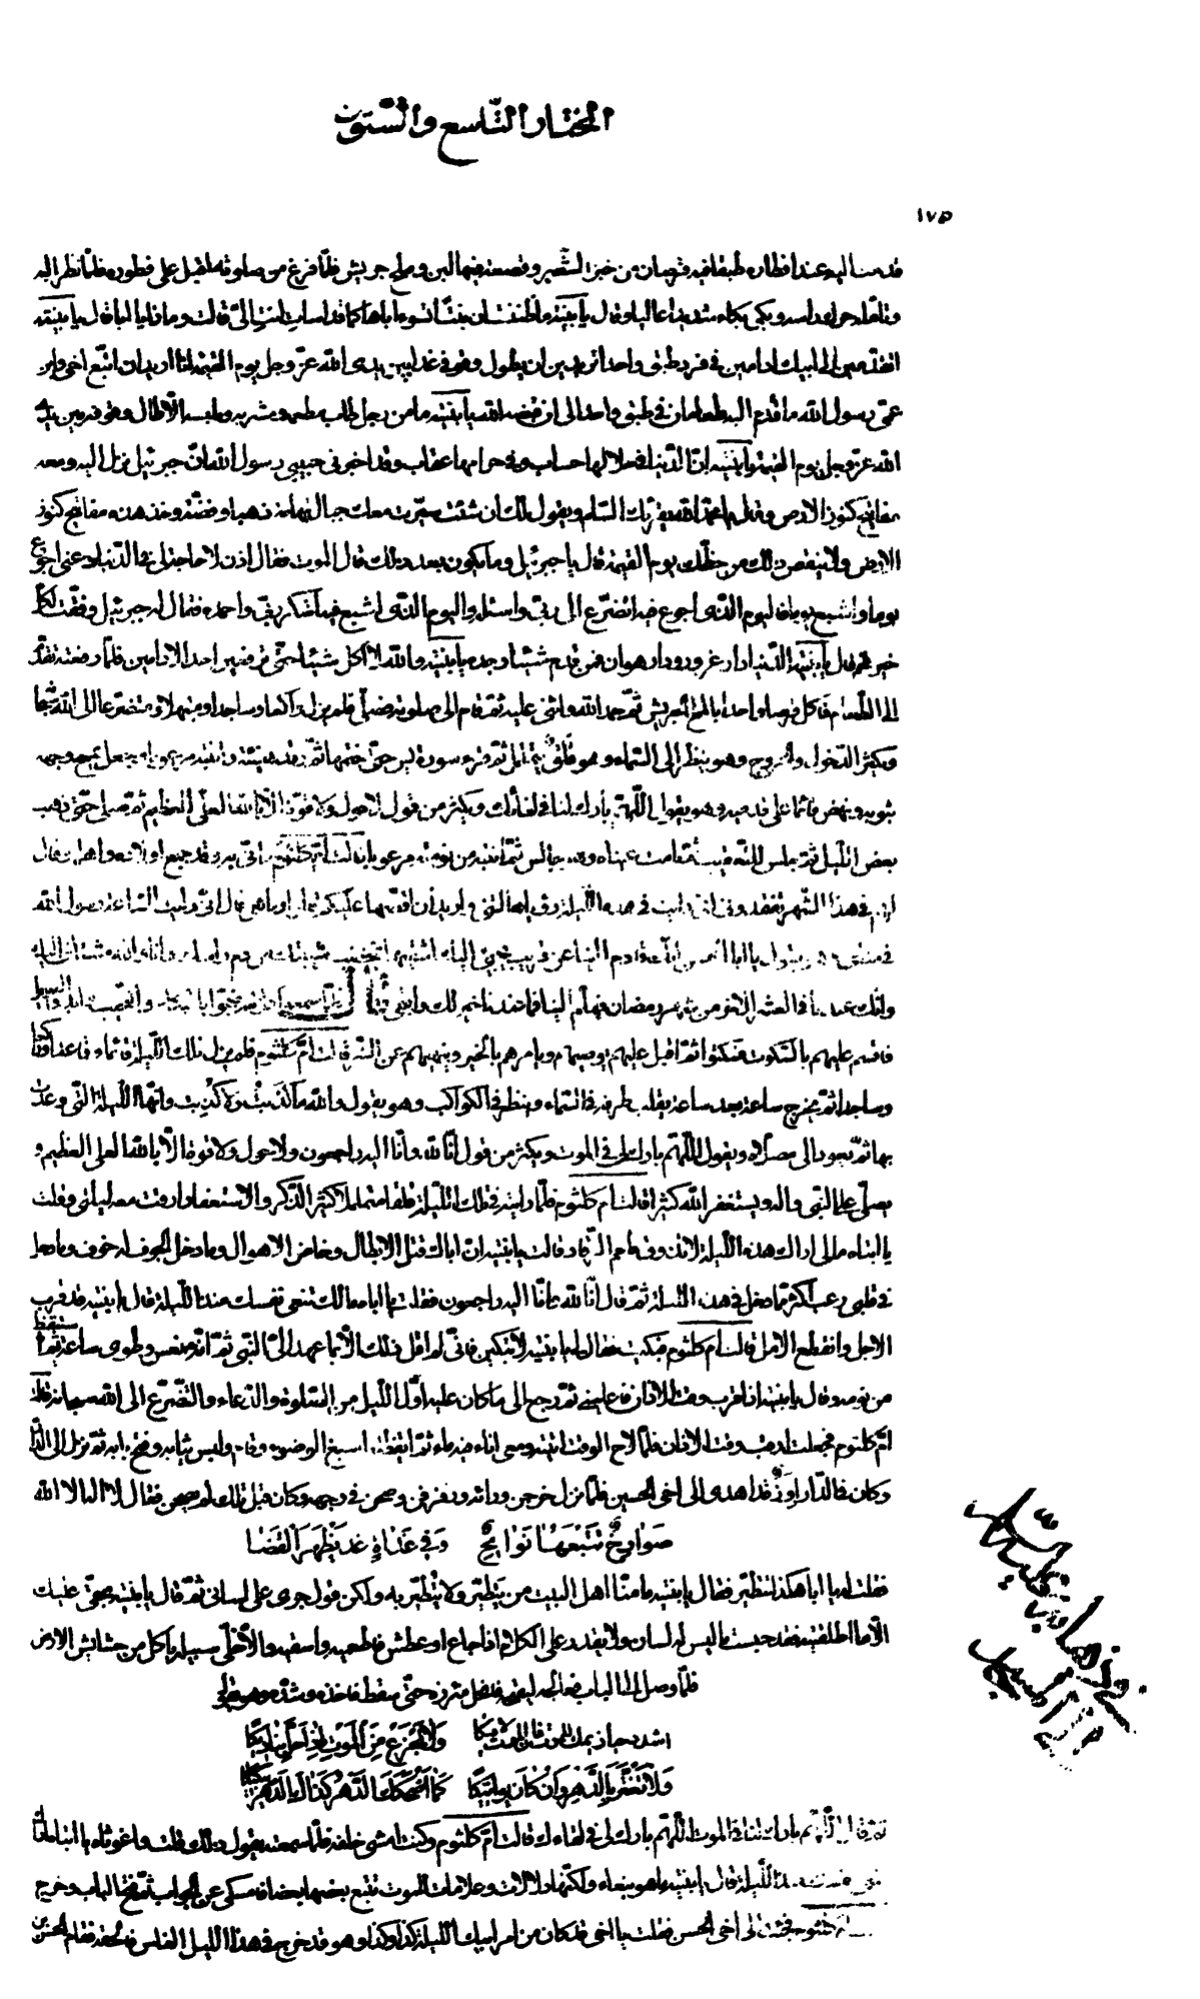 المختار التاسع والستون
١٧٥
قدمت اليه عند افطاره طبقا فيه قرصان من خبز الشعير وقصعة فيها لبن وملح جريش فلما فرغ من صلوته اقبل على فطوره فلما نظر اليه
وتأمله حرك راسه وبكى بكاء شديدا عاليا وقال يا بنية ما ظننت ان بنتا تسوء اباها كما قد اسات انت الى قالت وما ذا يا ابا قال يا بنية
اتقدمين الى ابيك ادامين في فرد طبق واحد اتريدين ان يطول وقوفي غدا بين يدي الله عز وجل يوم القيمة انا اريد ان اتبع اخي وابن
عمي رسول الله ما قدم اليه طعامان في طبق واحد الى ان قبضه الله يا بنية ما من رجل طاب مطعمه ومشربه وملبسه الا طال وقوفه بين يدي
الله عز وجل يوم القيمة يا بنية ان الدنيا في حلالها حساب وفي حرامها عقاب وقد اخبرني حبيبي رسول الله ان جبرئيل نزل اليه ومعه
مفاتيح كنوز الارض وقال يا محمد الله يقرئك السلم ويقول لك ان شئت سيرت معك جبال تهامة ذهبا وفضة وخذ هذه مفاتيح كنوز
الارض ولا ينقص ذلك من حظك يوم القيمة قال يا جبرئيل وما يكون بعد ذلك قال الموت فقال اذن لا حاجة لي في الدنيا دعني اجوع
يوما واشبع يوما فاليوم الذي اجوع فيه اتضرع الى ربي واسئله واليوم الذي اشبع فيه اشكر ربي واحمده فقال له جبرئيل وفقت لكل
خير ثم قال يا بنية الدنيا دار غرور ودار هوان فمن قدم شيئا وجده يا بنية والله لا اكل شيئا حتى ترفعين احد الادامين فلما رفعته تقدم
الى الطعام فاكل قرصا واحدا بالملح الجريش ثم حمد الله واثنى عليه ثم قام الى صلوته فصلى فلم يزل راكعا وساجدا ومبتهلا ومتضرعا الى الله سبحانه
ويكثر الدخول والخروج وهو ينظر الى السماء وهو قلق يتململ ثم قرء سورة يس حتى ختمها ثم رقد هنيئة وانتبه مرعوبا وجعل يمسح وجهه
بثوبه ونهض قائما على قدميه وهو يقول اللهم بارك لنا في لقائك ويكثر من قول لا حول ولا قوة الا بالله العلي العظيم ثم صلى حتى ذهب
بعض الليل ثم جلس للتعقيب ثم نامت عيناه وهو جالس ثم انتبه من نومته مرعوبا قالت ام كلثوم كاني به وقد جمع اولاده واهله وقال
لهم في هذا الشهر تفقدوني اني رايت في هذه الليلة رؤيا هالتني واريد ان اقصها عليكم قالوا وما هي قال اني رايت الساعة رسول الله
في منامي وهو يقول يا ابا الحسن انك قادم الينا عن قريب
وانك عندنا في العشر الاخر من شهر رمضان فهلم الينا فما عندنا خير لك وابقى قال فلما سمعوا كلامه ضجوا بالبكاء والنحيب
فاقسم عليهم بالسكوت فسكتوا ثم اقبل عليهم يوصيهم ويامرهم بالخير وينهيهم عن الشر قالت ام كلثوم فلم يزل تلك الليلة قائما وقاعدا وراكعا
وساجدا ثم يخرج ساعة بعد ساعة يقلب طرفه في السماء وينظر في الكواكب وهو يقول والله ما كذبت ولا كذبت وانها الليلة التي وعدت
بها ثم يعود الى مصلاه ويقول اللهم بارك لي في الموت ويكثر من قول انا لله وانا اليه راجعون ولا حول ولا قوة الا بالله العلي العظيم و
يصلي على النبي واله ويستغفر الله كثيرا قالت ام كلثوم فلما رايته في تلك الليلة قلقا متململا كثير الذكر والاستغفار ارقت معه ليلتي وقلت
يا ابتاه مالي اراك هذه الليلة لا تذوق طعم الرقاد قال يا بنية ان اباك قتل الابطال وخاض الاهوال وما دخل الجوف له خوف وما دخل
في قلبي رعب اكثر مما دخل في هذه الليلة ثم قال انا لله وانا اليه راجعون فقلت يا ابا مالك تنعى نفسك منذ الليلة قال يا بنية قد قرب
الاجل وانقطع الامل قالت ام كلثوم فبكيت فقال لي يا بنية لا تبكين فاني لم اقل ذلك الا بما عهد الى النبي ثم انه نعس وطوى ساعة ثم استيقظ
من نومه وقال يا بنية اذا قرب وقت الاذان فاعلميني ثم رجع الى ما كان عليه اول الليل من الصلوة والدعاء والتضرع الى الله سبحانه قالت
ام كلثوم فجعلت ارقب وقت الاذان فلما لاح الوقت اتيته ومعي اناء فيه ماء ثم ايقظته فاسبغ الوضوء وقام ولبس ثيابه وفتح بابه ثم نزل الى الدار
وكان في الدار اوز قد اهدى الى اخي الحسين فلما نزل خرجن ورائه ورفرفن وصحن في وجهه وكان قبل تلك لم يصحن فقال لا اله الا الله
صوارخ تتبعها نوائح وفي غداة غد يظهر القضا
فقلت له يا ابا هكذا تتطير فقال يا بنية ما منا اهل البيت من يتطير ولا يتطير به ولكن قول جرى على لساني ثم قال يا بنية بحقي عليك
الا ما اطلقتيه فقد حبست ما ليس له لسان ولا يقدر على الكلام اذا جاع او عطش فاطعميه واسقيه والا خلى سبيله ياكل من حشايش الارض
فلما وصل الى الباب فعالجه ليفتحه فانحل مئزره حتى سقط فاخذه وشده وهو يقول
اشدد حيازيمك للموت فان الموت لاقيكا ولا تجزع من الموت اذا حل بناديكا
ولا تغتر بالدهر وان كان يواتيكا كما اضحكك الدهر كذاك الدهر يبكيكا
ثم قال اللهم بارك لنا في الموت اللهم بارك لي في لقاءك قالت ام كلثوم وكنت امشي خلفه فلما سمعته يقول ذلك قلت واغوثاه يا ابتاه اراك
تنعى نفسك منذ الليلة قال يا بنية ما هو بنعاء ولكنها دلالات وعلامات للموت تتبع بعضها بعضا فامسكي عن الجواب ثم فتح الباب وخرج
قالت ام كلثوم فجئت الى اخي الحسن فقلت يا اخي قد كان من امر ابيك الليلة كذا وكذا وهو قد خرج في هذا الليل الغلس فالحقه فقام الحسن بن